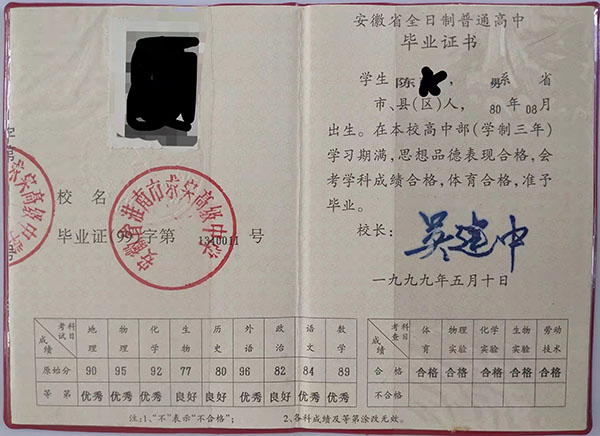 校名
毕业证(99)字第1310011号
考试科目 成绩 地理 物理 化学 生物 历史 外语 政治 语文 数学
原始分 90 95 92 77 80 96 82 84 89
等第 优秀 优秀 优秀 良好 良好 优秀 良好 良好 优秀
注:1、“不”表示“不合格”; 2、各科成绩及等第涂改无效。
安徽省全日制普通高中
毕业证书
学生 陈 , 男 系 省
市、县(区)人, 80年08月
出生。在本校高中部(学制三年)
学习期满,思想品德表现合格,会
考学科成绩合格,体育合格,准予
毕业。
校长:吴建中
一九九九年五月十日
考查科目 成绩 体育 物理实验 化学实验 生物实验 劳动技术
合格 合格 合格 合格 合格 合格
不合格